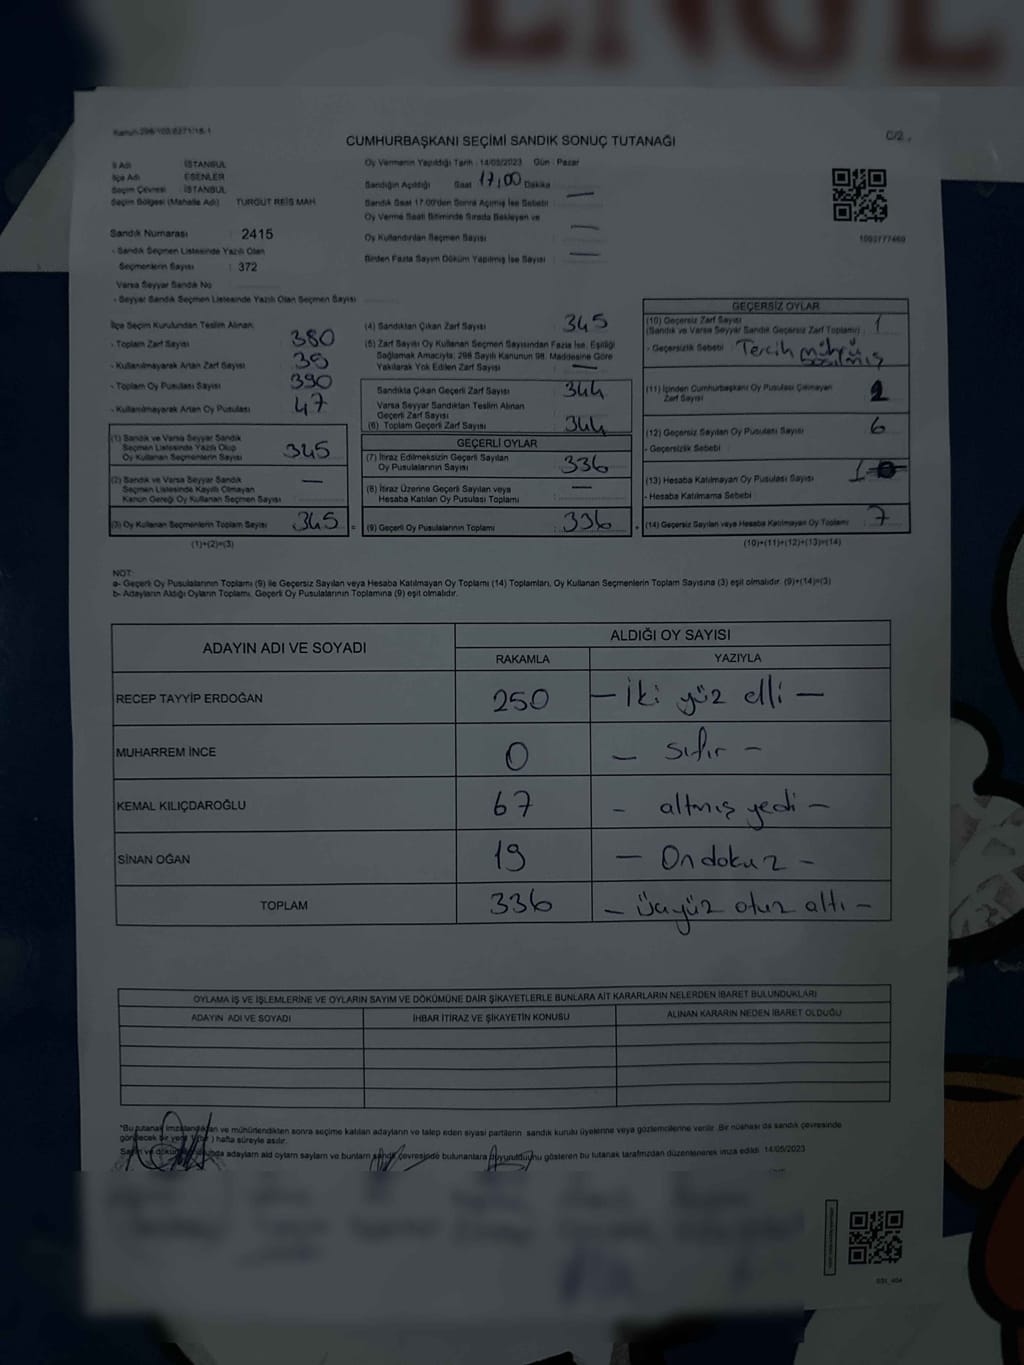 ENGE
Kanun 298/100,6271/18-1
C/2
CUMHURBAŞKANI SEÇİMİ SANDIK SONUÇ TUTANAĞI
İl Adı : İSTANBUL
İlçe Adı : ESENLER
Seçim Çevresi : İSTANBUL
Seçim Bölgesi (Mahalle Adı) : TURGUT REİS MAH
Sandık Numarası : 2415
- Sandık Seçmen Listesinde Yazılı Olan
Seçmenlerin Sayısı : 372
Varsa Seyyar Sandık No
- Seyyar Sandık Seçmen Listesinde Yazılı Olan Seçmen Sayısı
Oy Vermenin Yapıldığı Tarih : 14/05/2023 Gün : Pazar
Sandığın Açıldığı Saat 17:00 Dakika
Sandık Saat 17.00'den Sonra Açılmış İse Sebebi : —
Oy Verme Saati Bitiminde Sırada Bekleyen ve
Oy Kullandırılan Seçmen Sayısı : —
Birden Fazla Sayım Döküm Yapılmış İse Sayısı : —
İlçe Seçim Kurulundan Teslim Alınan;
- Toplam Zarf Sayısı : 380
- Kullanılmayarak Artan Zarf Sayısı : 35
- Toplam Oy Pusulası Sayısı : 390
- Kullanılmayarak Artan Oy Pusulası : 47
(1) Sandık ve Varsa Seyyar Sandık
Seçmen Listesinde Yazılı Olup
Oy Kullanan Seçmenlerin Sayısı : 345
(2) Sandık ve Varsa Seyyar Sandık
Seçmen Listesinde Kayıtlı Olmayan
Kanun Gereği Oy Kullanan Seçmen Sayısı : —
(3) Oy Kullanan Seçmenlerin Toplam Sayısı : 345 =
(1)+(2)=(3)
(4) Sandıktan Çıkan Zarf Sayısı : 345
(5) Zarf Sayısı Oy Kullanan Seçmen Sayısından Fazla İse, Eşitliği
Sağlamak Amacıyla; 298 Sayılı Kanunun 98. Maddesine Göre
Yakılarak Yok Edilen Zarf Sayısı : —
Sandıkta Çıkan Geçerli Zarf Sayısı : 344
Varsa Seyyar Sandıktan Teslim Alınan
Geçerli Zarf Sayısı
(6) Toplam Geçerli Zarf Sayısı : 344
GEÇERLİ OYLAR
(7) İtiraz Edilmeksizin Geçerli Sayılan
Oy Pusulalarının Sayısı : 336
(8) İtiraz Üzerine Geçerli Sayılan veya
Hesaba Katılan Oy Pusulası Toplamı : —
(9) Geçerli Oy Pusulalarının Toplamı : 336 +
GEÇERSİZ OYLAR
(10) Geçersiz Zarf Sayısı
(Sandık ve Varsa Seyyar Sandık Geçersiz Zarf Toplamı) : 1
- Geçersizlik Sebebi : Tercih mührü
basılmış
(11) İçinden Cumhurbaşkanı Oy Pusulası Çıkmayan
Zarf Sayısı
(12) Geçersiz Sayılan Oy Pusulası Sayısı : 6
- Geçersizlik Sebebi :
(13) Hesaba Katılmayan Oy Pusulası Sayısı
- Hesaba Katılmama Sebebi
(14) Geçersiz Sayılan veya Hesaba Katılmayan Oy Toplamı : 7
(10)+(11)+(12)+(13)=(14)
NOT:
a- Geçerli Oy Pusulalarının Toplamı (9) ile Geçersiz Sayılan veya Hesaba Katılmayan Oy Toplamı (14) Toplamları, Oy Kullanan Seçmenlerin Toplam Sayısına (3) eşit olmalıdır. (9)+(14)=(3)
b- Adayların Aldığı Oyların Toplamı, Geçerli Oy Pusulalarının Toplamına (9) eşit olmalıdır.
ADAYIN ADI VE SOYADI
ALDIĞI OY SAYISI
RAKAMLA YAZIYLA
RECEP TAYYİP ERDOĞAN 250 — İki yüz elli —
MUHARREM İNCE 0 — sıfır —
KEMAL KILIÇDAROĞLU 67 - altmış yedi —
SİNAN OĞAN 19 — On dokuz —
TOPLAM 336 — Üçyüz otuz altı —
OYLAMA İŞ VE İŞLEMLERİNE VE OYLARIN SAYIM VE DÖKÜMÜNE DAİR ŞİKAYETLERLE BUNLARA AİT KARARLARIN NELERDEN İBARET BULUNDUKLARI
ADAYIN ADI VE SOYADI İHBAR İTİRAZ VE ŞİKAYETİN KONUSU ALINAN KARARIN NEDEN İBARET OLDUĞU
"Bu tutanak imzalandıktan ve mühürlendikten sonra seçime katılan adayların ve talep eden siyasi partilerin sandık kurulu üyelerine veya gözlemcilerine verilir. Bir nüshası da sandık çevresinde
görülecek bir yere ) hafta süreyle asılır.
Sayım ve dökümü adayların ald oyların sayların ve bunların sandık çevresinde bulunanlara duyurulduğunu gösteren bu tutanak tarafımızdan düzenlenerek imza edildi. 14/05/2023